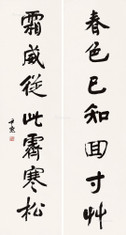 春色已知回寸艸
霜威從此霽寒松